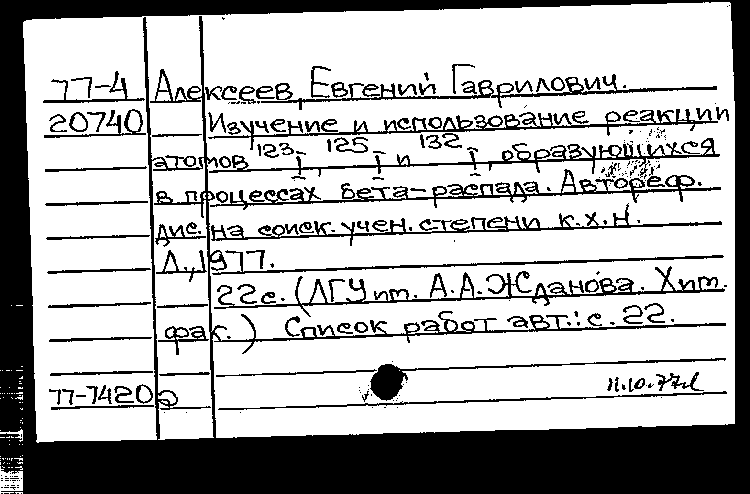 77-4 Алексеев, Евгений Гаврилович.
20740 Изучение и использование реакции
атомов ¹²³I, ¹²⁵I и ¹³²I, образующихся
в процессах бета-распада. Автореф.
дис. на соиск. учен. степени к.х.н.
Л., 1977.
22с. (ЛГУ им. А.А. Жданова. Хим.
фак.) Список работ авт.: с. 22.
77-7420 11.10.77